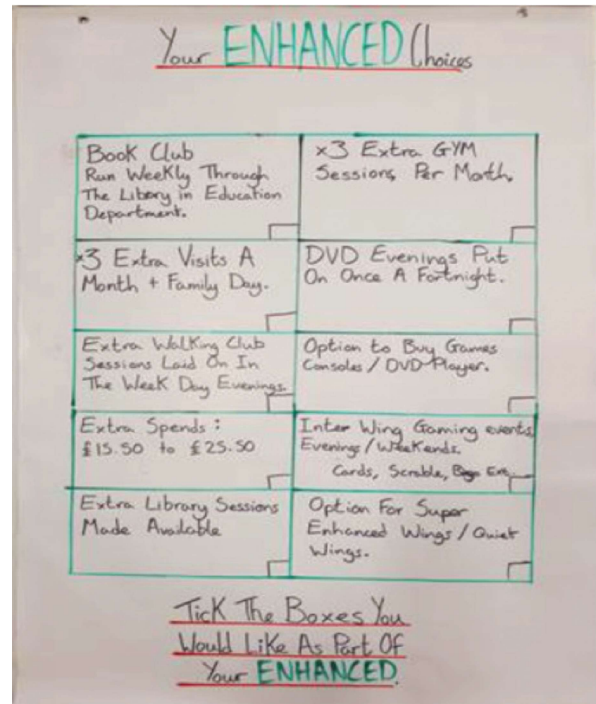 Your ENHANCED Choices
Book Club
Run Weekly Through
The Libery in Education
Department.
x3 Extra GYM
Sessions Per Month.
x3 Extra Visits A
Month + Family Day.
DVD Evenings Put
On Once A Fortnight.
Extra Walking Club
Sessions Laid On In
The Week Day Evenings
Option to Buy Games
Consoles / DVD Player.
Extra Spends :
£15.50 to £25.50
Inter Wing Gaming events
Evenings / Weekends.
Cards, Scrable,
Extra Library Sessions
Made Available
Option For Super
Enhanced Wings / Quiet
Wings.
Tick The Boxes You
Would Like As Part Of
Your ENHANCED.